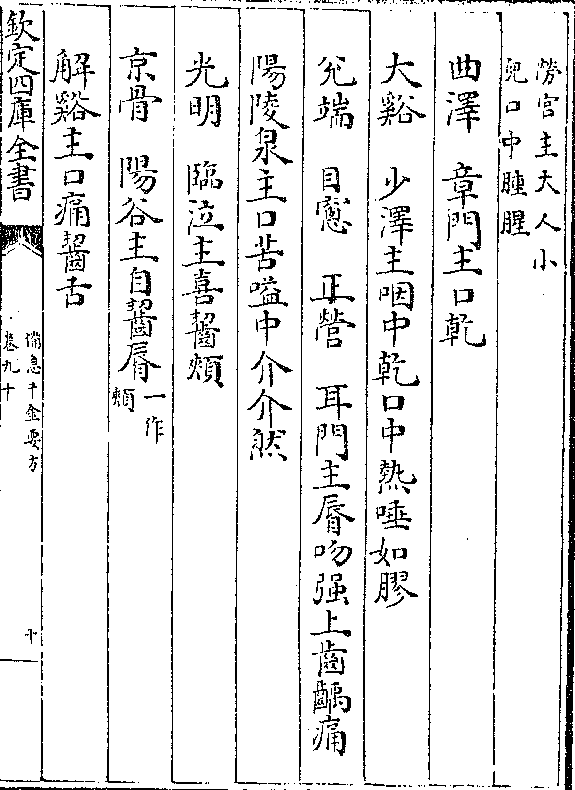 勞宫主大人小
兒口中腫腥
曲澤　章門主口乾
大谿　少澤主咽中乾口中熱唾如膠
兊端　目窻　正營　耳門主脣吻强上齒齲痛
陽陵泉主口苦嗌中介介然
光明　臨泣主喜齧頰
京骨　陽谷主自齧脣一作
頰
解谿主口痛齧舌
欽定四庫全書
備急千金要方
卷九十
十